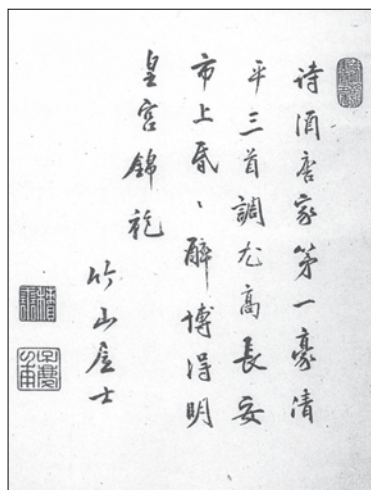 诗酒唐家第一豪清
平三首調尤高長安
市上昏、醉博得明
皇宮錦袍
竹山居士